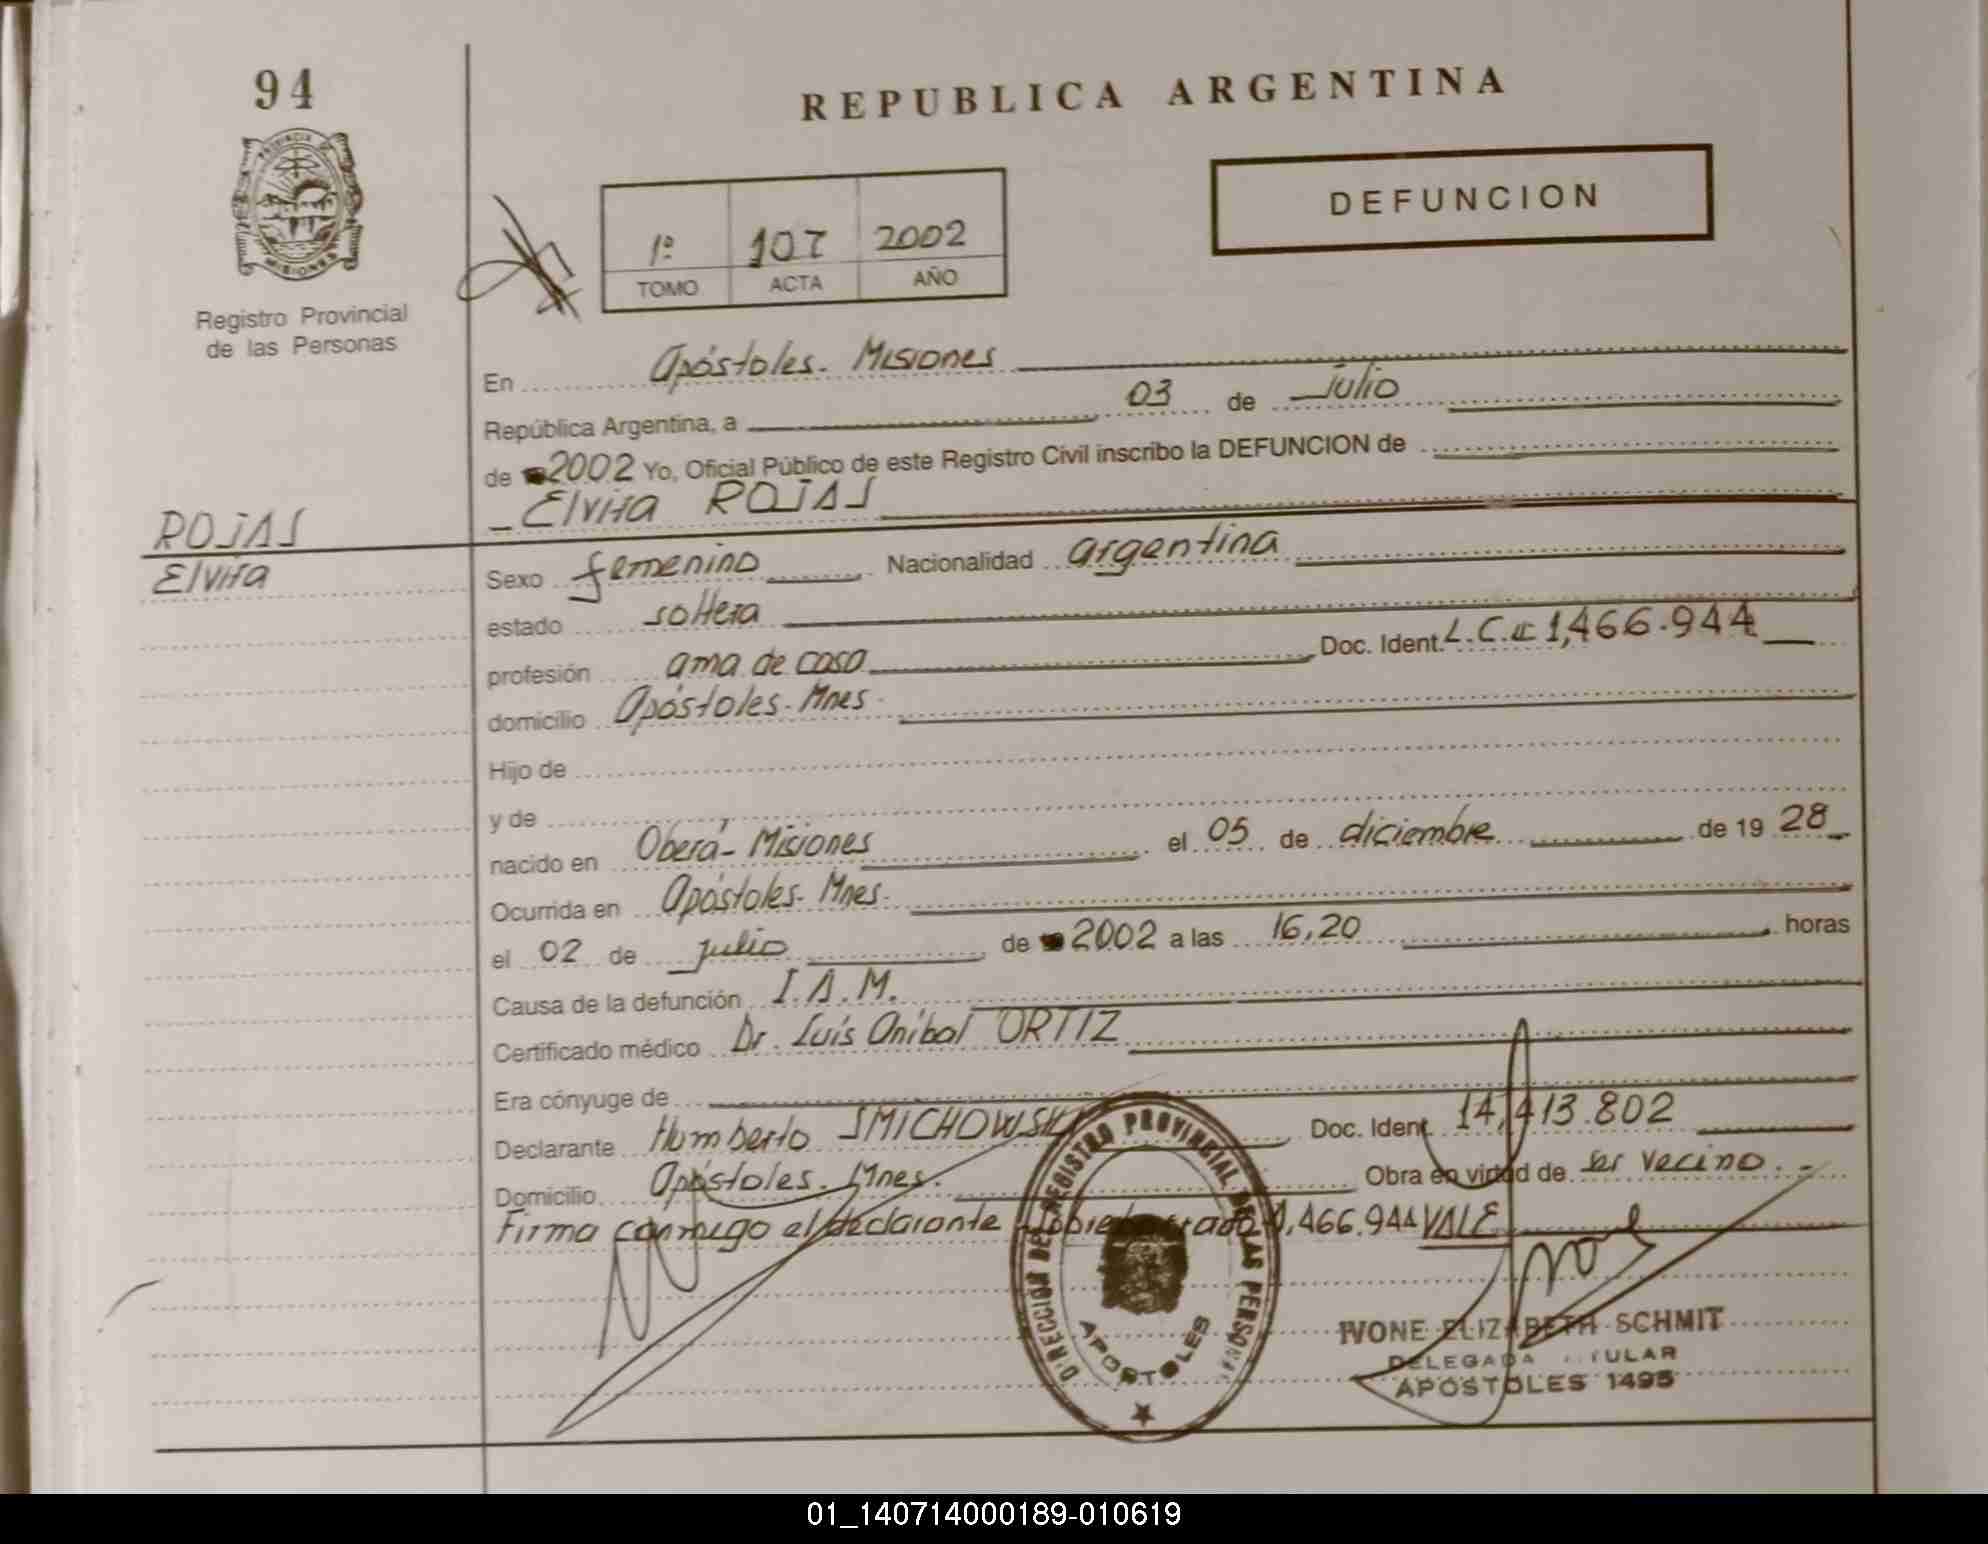 94
REPUBLICA ARGENTINA
PROVINCIA DE
MISIONES
Registro Provincial
de las Personas
DEFUNCION
1º 107 2002
TOMO ACTA AÑO
En Apóstoles. Misiones
República Argentina, a 03 de julio
de 2002 Yo, Oficial Público de este Registro Civil inscribo la DEFUNCION de
Elvira ROJAS
ROJAS
Elvira
Sexo femenino Nacionalidad argentina
estado soltera
profesión ama de casa Doc. Ident. L.C. 1,466.944
domicilio Apóstoles-Mnes.
Hijo de
y de
nacido en Oberá-Misiones el 05 de diciembre de 19 28
Ocurrida en Apóstoles-Mnes.
el 02 de julio de 2002 a las 16,20 horas
Causa de la defunción I.A.M.
Certificado médico Dr. Luis Anibal ORTIZ
Era cónyuge de
Declarante Humberto SMICHOWSKI Doc. Ident. 14,413.802
Domicilio Apóstoles. Mnes. Obra en vidad de ser vecino.
Firma conmigo el declarante sobreborrado 1,466.944 VALE
DIRECCION DE REGISTRO PROVINCIAL DE LAS PERSONAS
APOSTOLES
IVONE ELIZABETH SCHMIT
DELEGADA TITULAR
APOSTOLES 1495
01_140714000189-010619